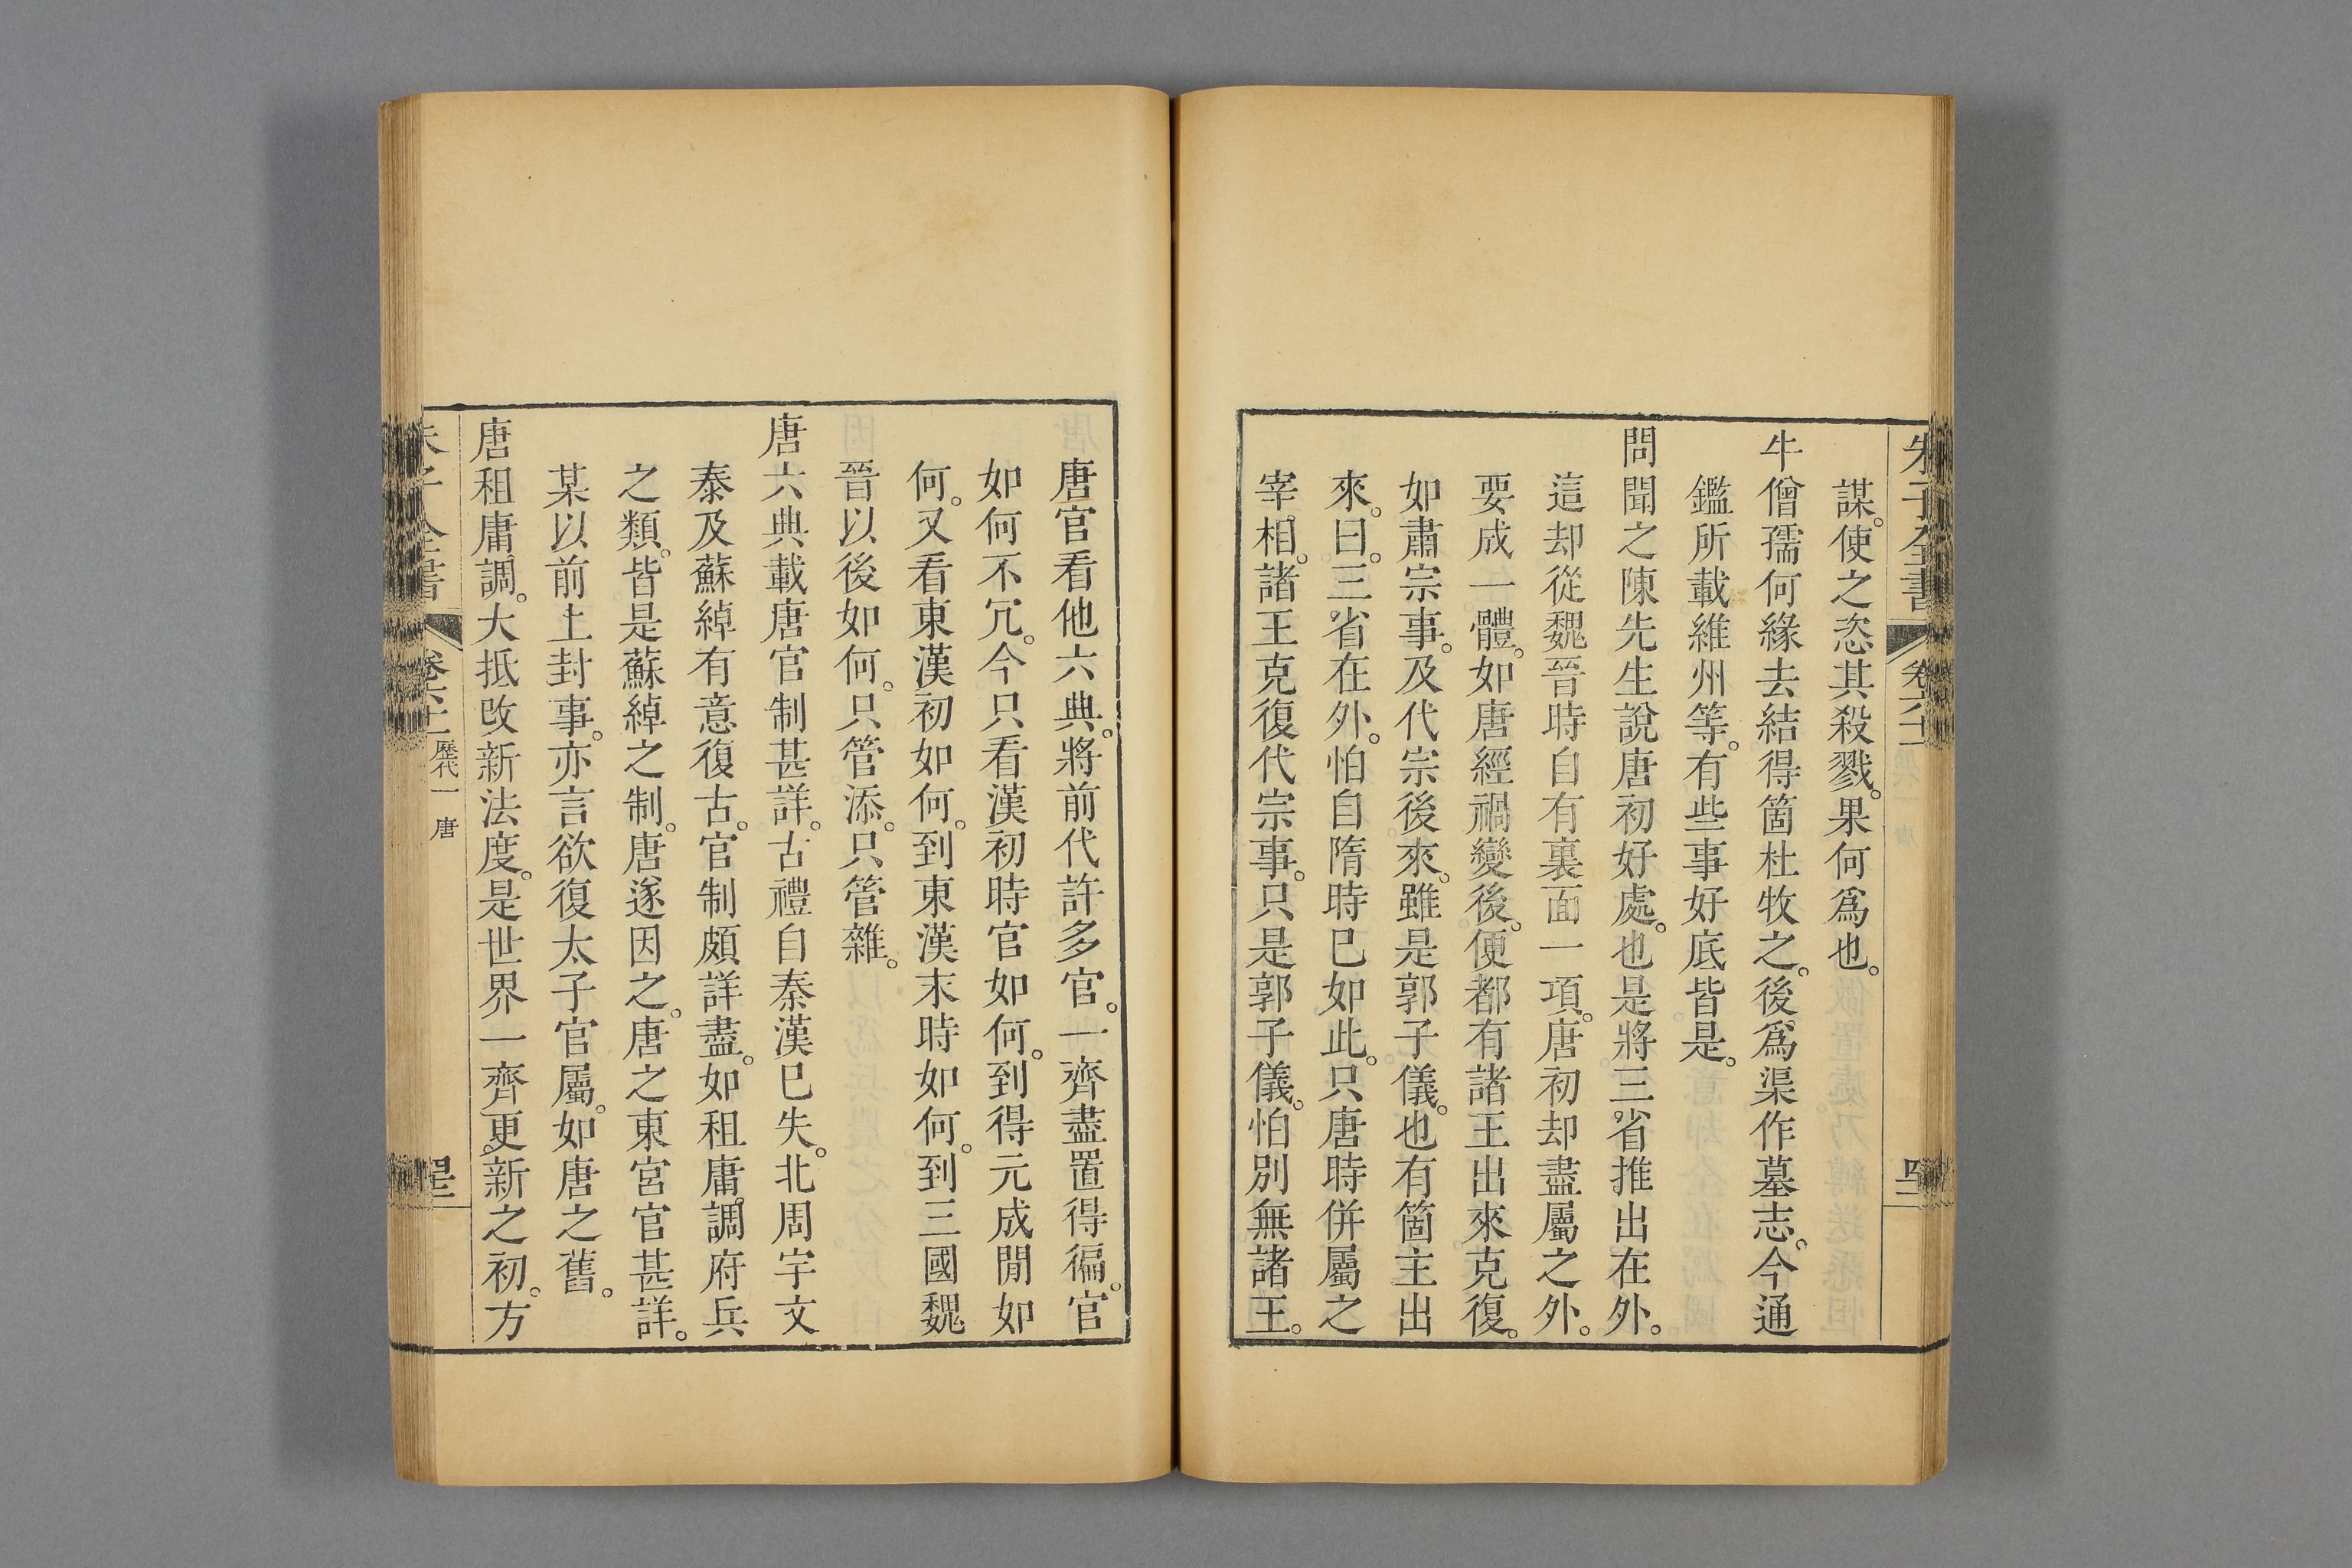 朱子全書 卷六十一
謀。使之恣其殺戮。果何爲也。
牛僧孺何緣去結得箇杜牧之。後爲渠作墓志。今通
鑑所載維州等。有些事好底皆是。
問聞之陳先生說唐初好處。也是將三省推出在外。
這却從魏晉時自有裏面一項。唐初却盡屬之外。
要成一體。如唐經禍變後。便都有諸王出來克復。
如肅宗事。及代宗後來。雖是郭子儀。也有箇主出
來。曰。三省在外。怕自隋時已如此。只唐時併屬之
宰相。諸王克復代宗事。只是郭子儀。怕別無諸王。
唐官看他六典。將前代許多官。一齊盡置得徧。官
如何不冗。今只看漢初時官如何。到得元成閒如
何。又看東漢初如何。到東漢末時如何。到三國魏
晉以後如何。只管添。只管雜。
唐六典載唐官制甚詳。古禮自秦漢已失。北周宇文
泰及蘇綽有意復古。官制頗詳盡。如租庸調府兵
之類。皆是蘇綽之制。唐遂因之。唐之東宮官甚詳。
某以前上封事。亦言欲復太子官屬。如唐之舊。
唐租庸調。大抵改新法度。是世界一齊更新之初。方
歷代一 唐